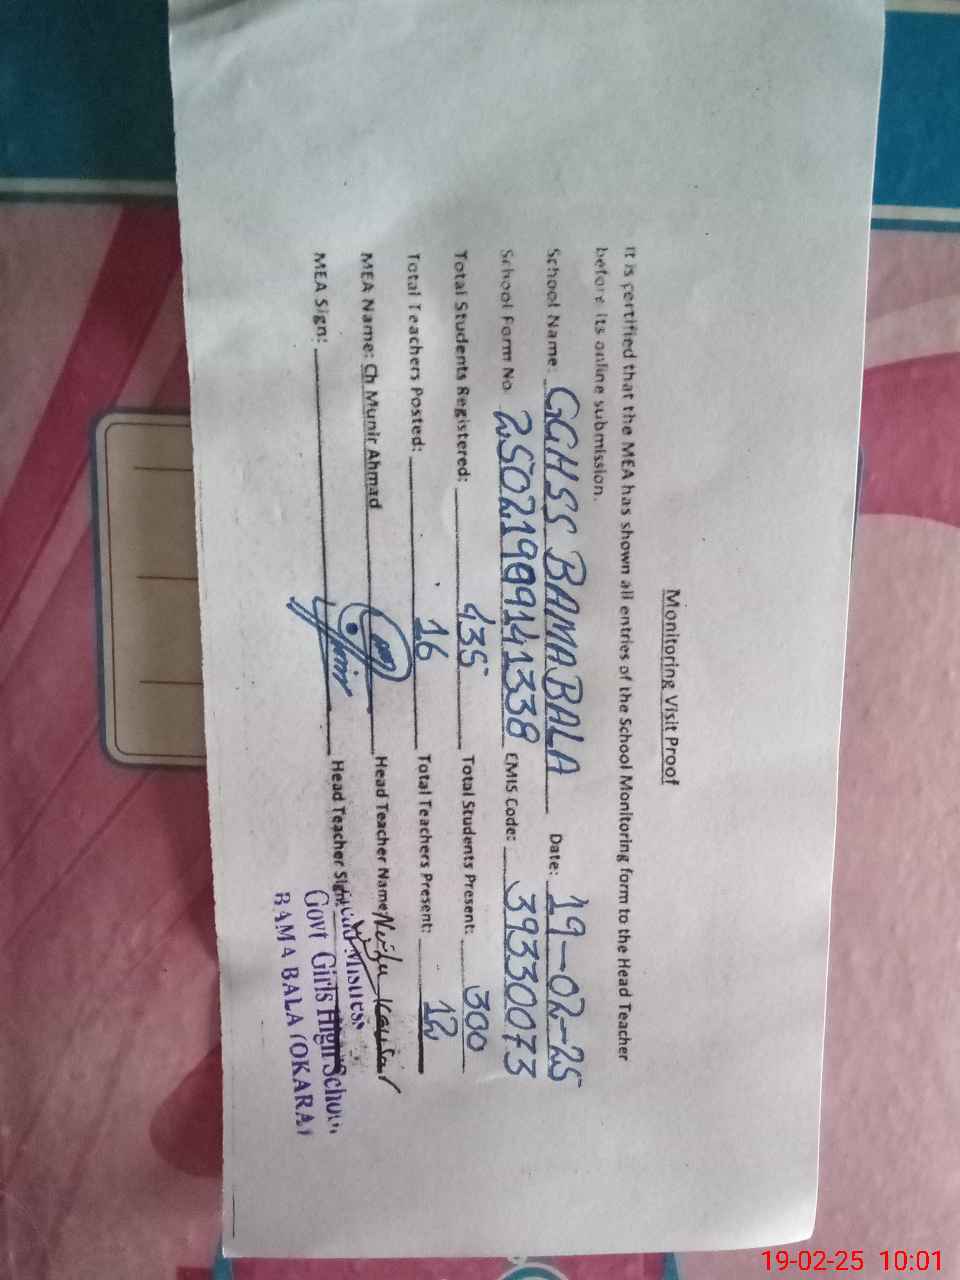 Monitoring Visit Proof
It is certified that the MEA has shown all entries of the School Monitoring form to the Head Teacher
before its online submission.
School Name: GGHSS BAMABALA Date: 19-02-25
School Form No. EMIS Code: 39330073
Total Students Registered: 435 Total Students Present: 300
Total Teachers Posted: 16 Total Teachers Present: 12
MEA Name: Ch Munir Ahmad Head Teacher Name: Kausar
MEA Sign: Head Teacher Sign:
Head Mistress
Govt Girls High School
BAMA BALA (OKARA)
19-02-25 10:01